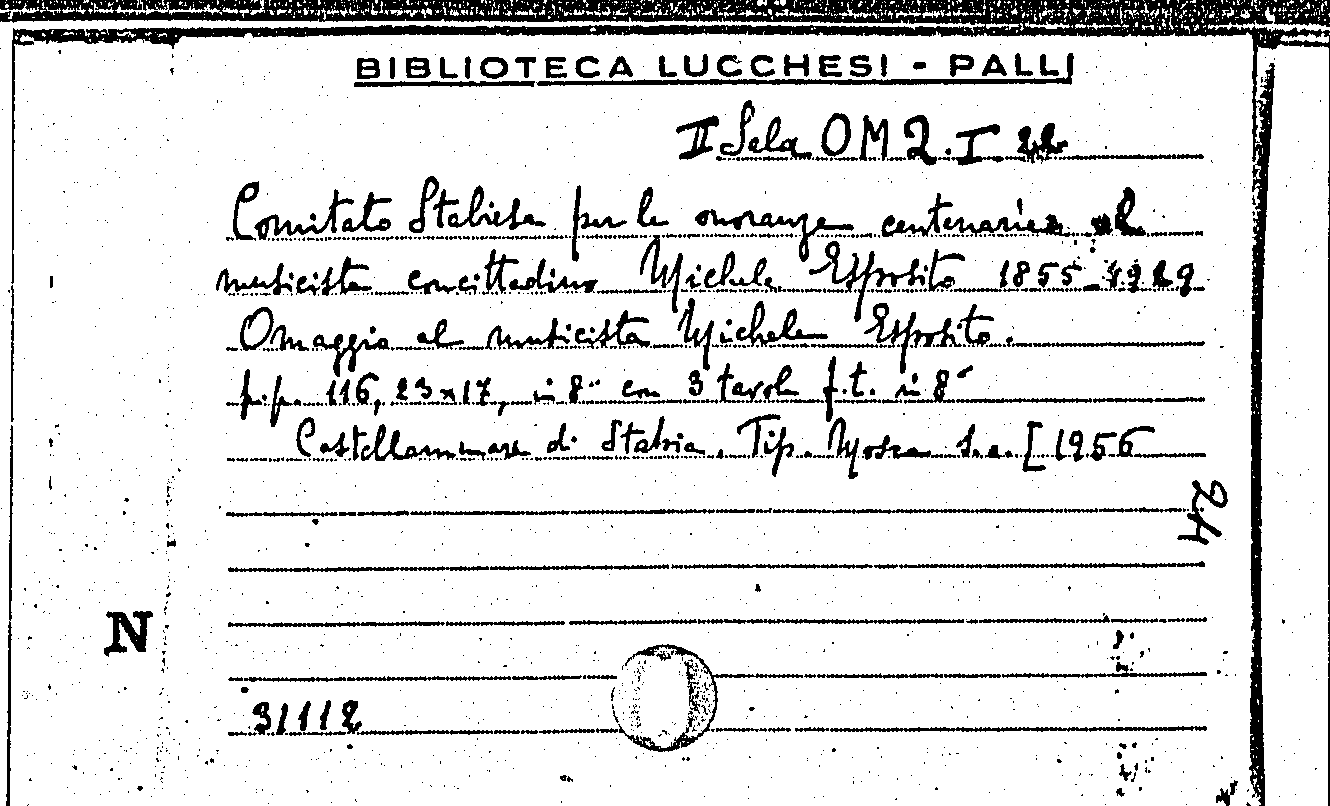 BIBLIOTECA LUCCHESI - PALLI
II Sala OM 2. I 22
Comitato Stabiese per le onoranze centenarie al
musicista concittadino Michele Esposito 1855-1929
Omaggio al musicista Michele Esposito.
p.p. 116, 23x17, in 8° con 3 tavole f.t. in 8°
Castellammare di Stabia. Tip. Mosca s.a. [1956
24
N
31112